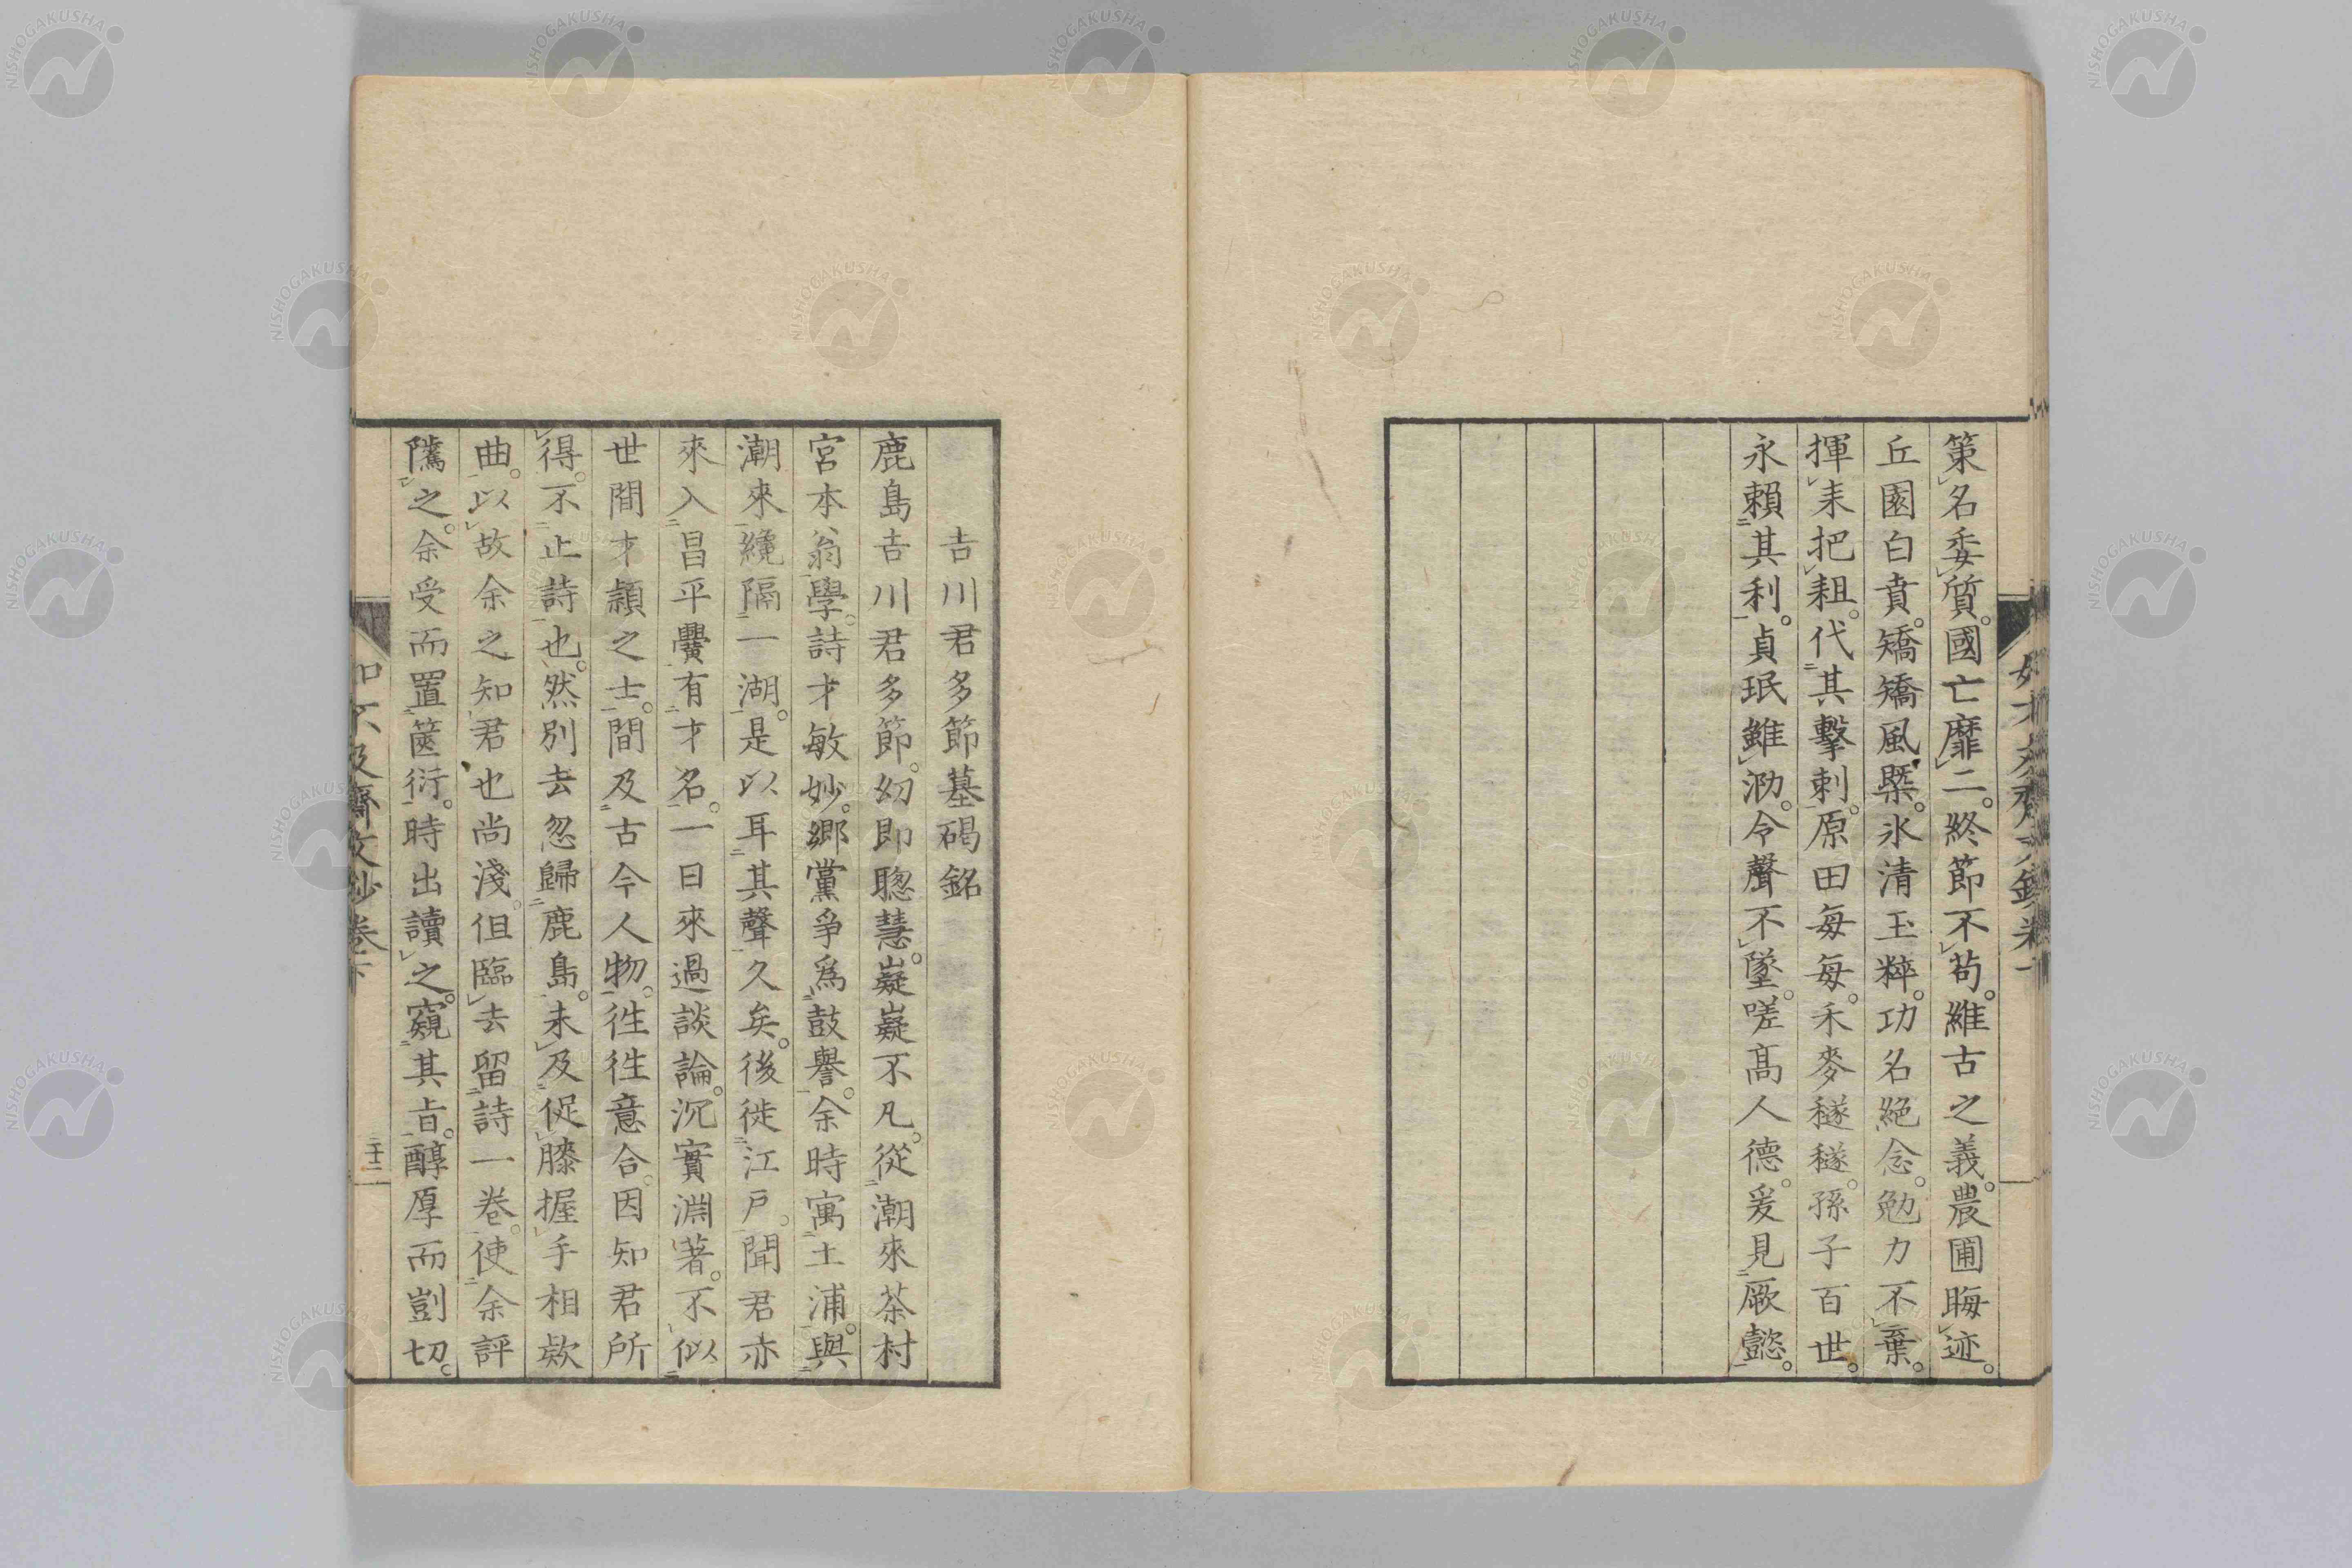 策名委質。國亡靡二。終節不苟。維古之義。農圃晦迹。
丘園白賁。矯矯風槩。氷清玉粹。功名絕念。勉力不棄。
揮耒把耡。代其擊刺。原田每每。禾麥穟穟。孫子百世。
永賴其利。貞珉雖泐。令聲不墜。嗟高人德。爰見厥懿。
吉川君多節墓碣銘
鹿島吉川君多節。幼即聰慧。嶷嶷不凡。從潮來茶村
宮本翁學。詩才敏妙。鄉黨爭爲鼓譽。余時寓土浦。與
潮來纔隔一湖。是以耳其聲久矣。後徙江戶。聞君亦
來入昌平黌有才名。一日來過談論。沉實淵著。不似
世間才穎之士。間及古今人物。往往意合。因知君所
得。不止詩也。然別去忽歸鹿島。未及促膝握手相欵
曲。以故余之知君也尚淺。但臨去留詩一卷。使余評
隲之。余受而置篋衍。時出讀之。窺其旨。醇厚而剴切。
如不及齋文鈔卷下
三十二
NISHOGAKUSHA